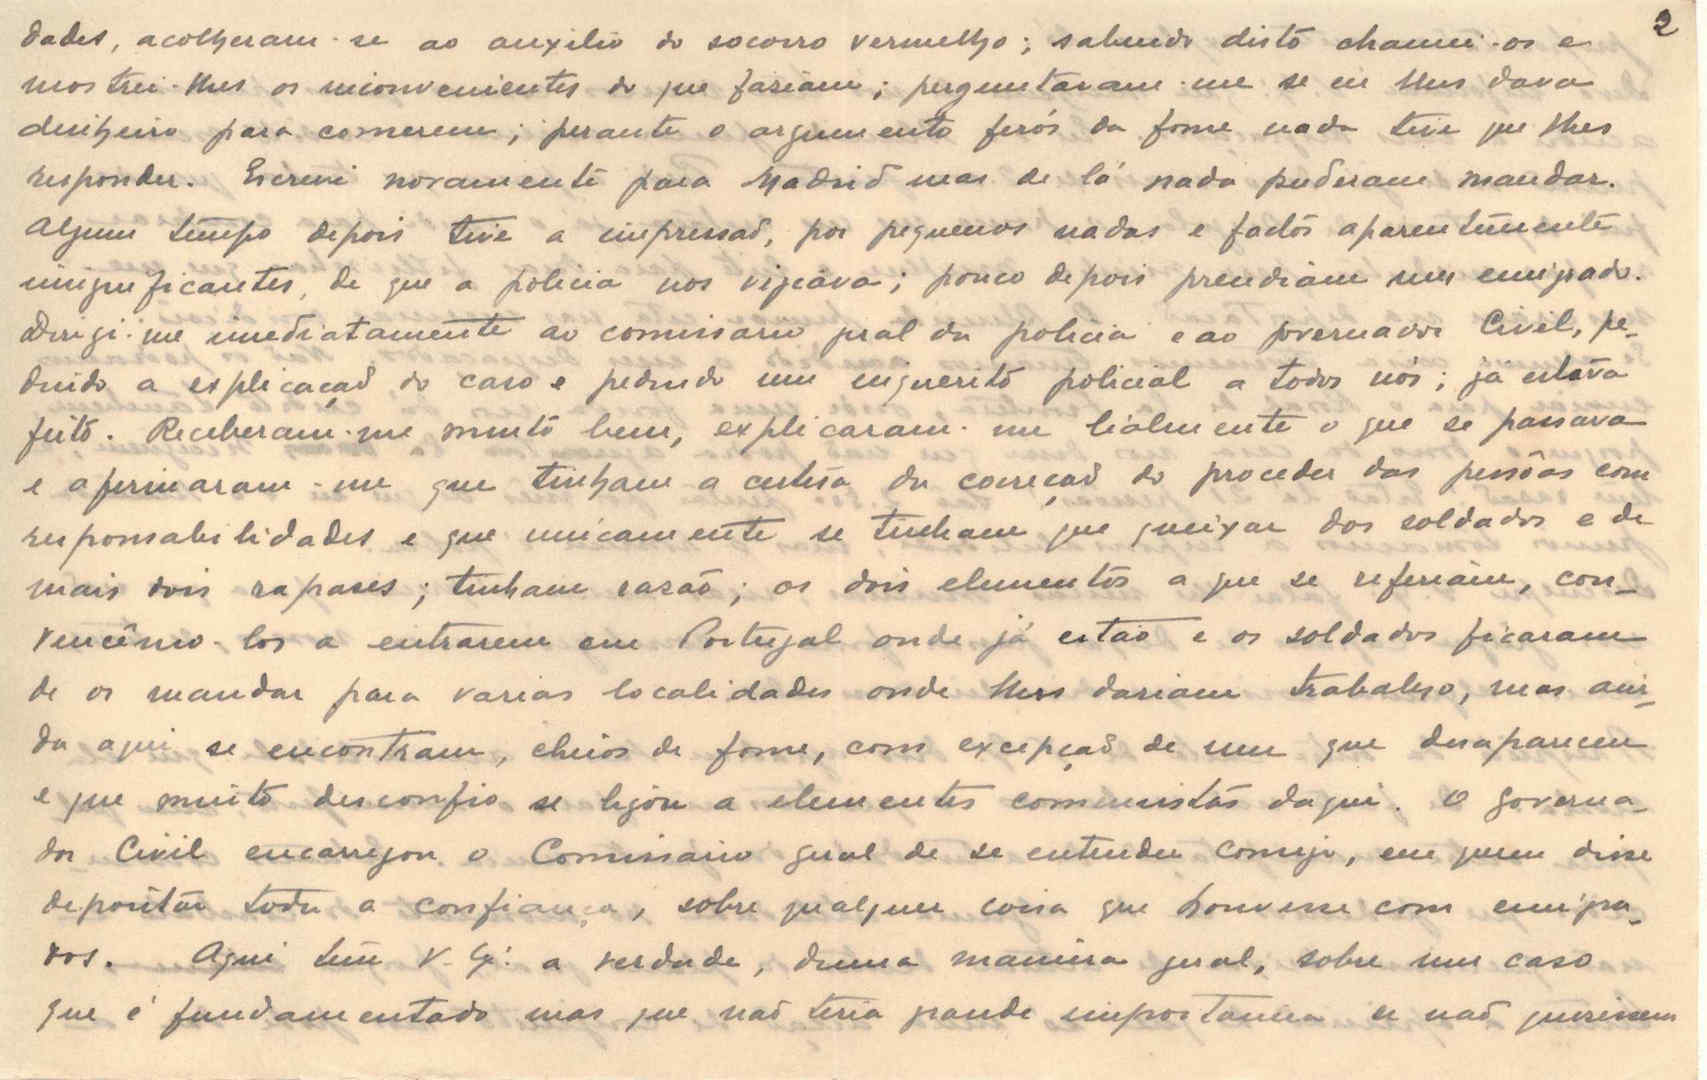 2
dades, acolheram-se ao auxilio do socorro vermelho; sabendo disto chamei-os e
mostrei-lhes os inconvenientes do que faziam; perguntaram-me se eu lhes dava
dinheiro para comerem; perante o argumento ferós da fome nada tive que lhes
responder. Escrevi novamente para Madrid mas de lá nada puderam mandar.
Algum tempo depois tive a impressaõ, por pequenos nadas e factos aparentemente
insignificantes, de que a policia nos vigiava; pouco depois prendiam um emigrado.
Dirigi-me imediatamente ao comissario geral da policia e ao governador Civil, pe-
dindo a explicaçaõ do caso e pedindo um inquerito policial a todos nós; já estava
feito. Receberam-me muito bem, explicaram-me lialmente o que se passava
e afirmaram-me que tinham a certesa da correçaõ do proceder das pessôas com
responsabilidades e que unicamente se tinham que queixar dos soldados e de
mais dois rapases; tinham rasaõ; os dois elementos a que se referiam, con-
vencêmo-los a entrarem em Portugal onde já estaõ e os soldados ficaram
de os mandar para varias localidades onde lhes dariam trabalho, mas ain-
da aqui se encontram, cheios de fome, com excepçaõ de um que desapareceu
e que muito desconfio se ligou a elementos comunistas daqui. O Governa-
dor Civil encarregou o Comissario geral de se entender comigo, em quem disse
depositar toda a confiança, sobre qualquer coisa que houvesse com emigra-
dos. Aqui tem V. Exª a verdade, duma maneira geral, sobre um caso
que é fundamentado mas que naõ teria grande importancia se naõ quisessem